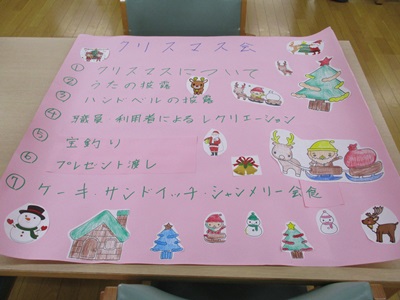 クリスマス会
① クリスマスについて
② うたの披露
③ ハンドベルの披露
④ 職員 利用者によるレクリエーション
⑤ 宝釣り
⑥ プレゼント渡し
⑦ ケーキ・サンドイッチ・シャンメリー会食